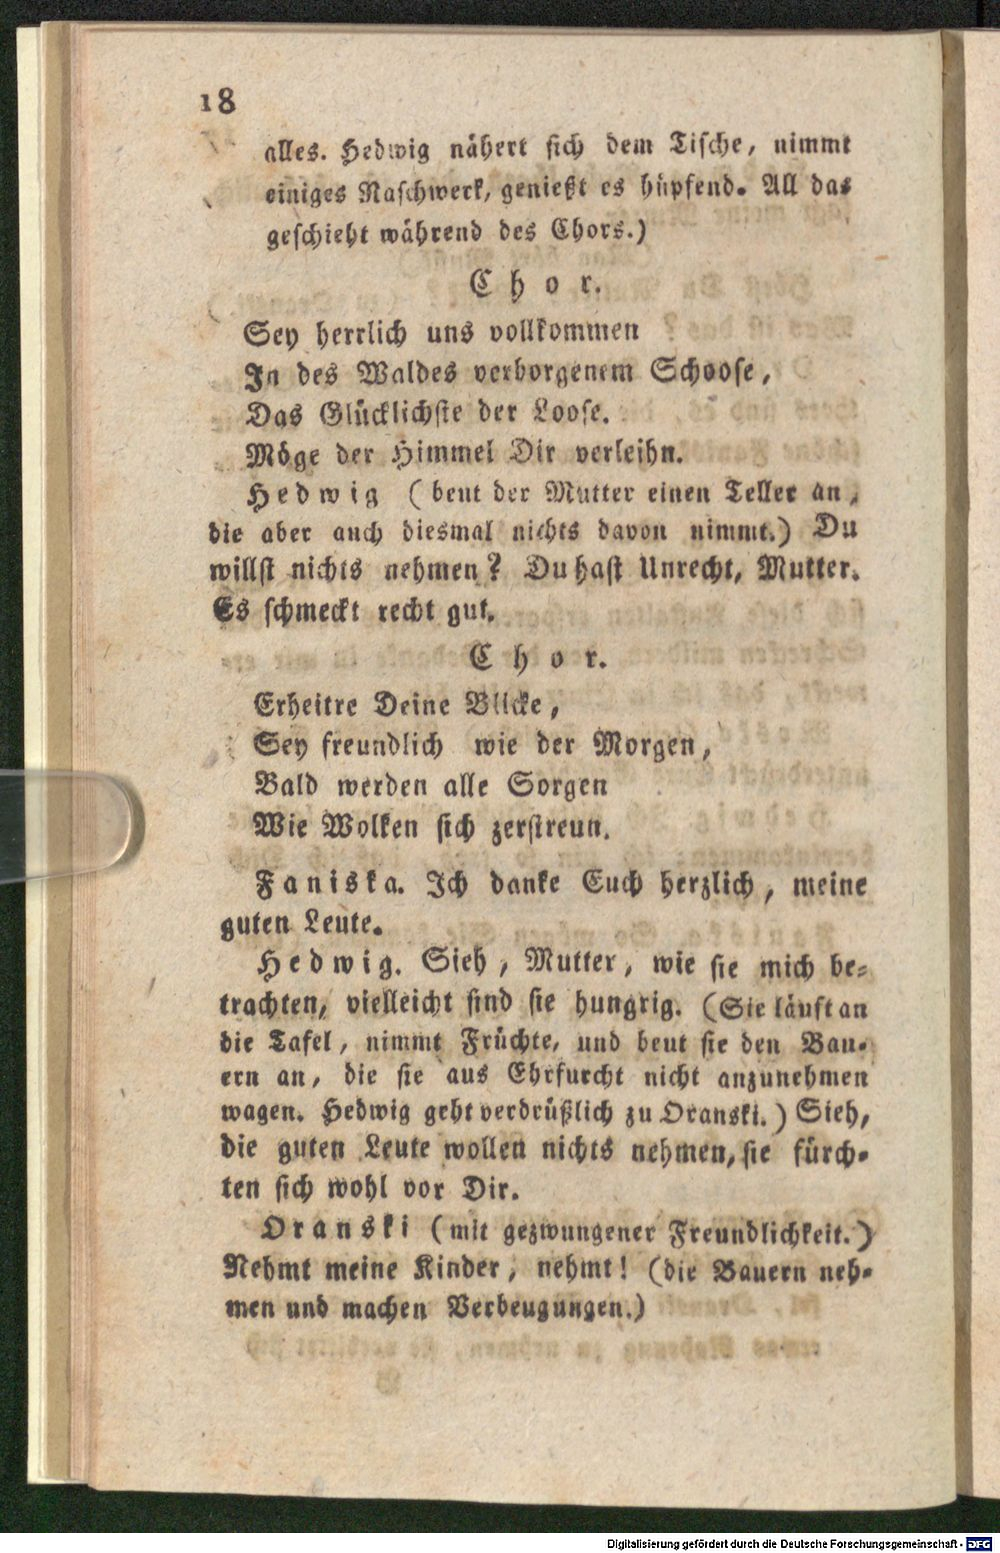 18
alles. Hedwig nähert sich dem Tische, nimmt
einiges Naschwerk, genießt es hüpfend. All das
geschieht während des Chors.)
Chor.
Sey herrlich uns vollkommen
In des Waldes verborgenem Schoose,
Das Glücklichste der Loose.
Möge der Himmel Dir verleihn.
Hedwig (beut der Mutter einen Teller an,
die aber auch diesmal nichts davon nimmt.) Du
willst nichts nehmen? Du hast Unrecht, Mutter.
Es schmeckt recht gut.
Chor.
Erheitre Deine Blicke,
Sey freundlich wie der Morgen,
Bald werden alle Sorgen
Wie Wolken sich zerstreun.
Faniska. Ich danke Euch herzlich, meine
guten Leute.
Hedwig. Sieh, Mutter, wie sie mich be-
trachten, vielleicht sind sie hungrig. (Sie läuft an
die Tafel, nimmt Früchte, und beut sie den Bau-
ern an, die sie aus Ehrfurcht nicht anzunehmen
wagen. Hedwig geht verdrüßlich zu Oranski.) Sieh,
die guten Leute wollen nichts nehmen, sie fürch-
ten sich wohl vor Dir.
Oranski (mit gezwungener Freundlichkeit.)
Nehmt meine Kinder, nehmt! (die Bauern neh-
men und machen Verbeugungen.)
Digitalisierung gefördert durch die Deutsche Forschungsgemeinschaft - DFG